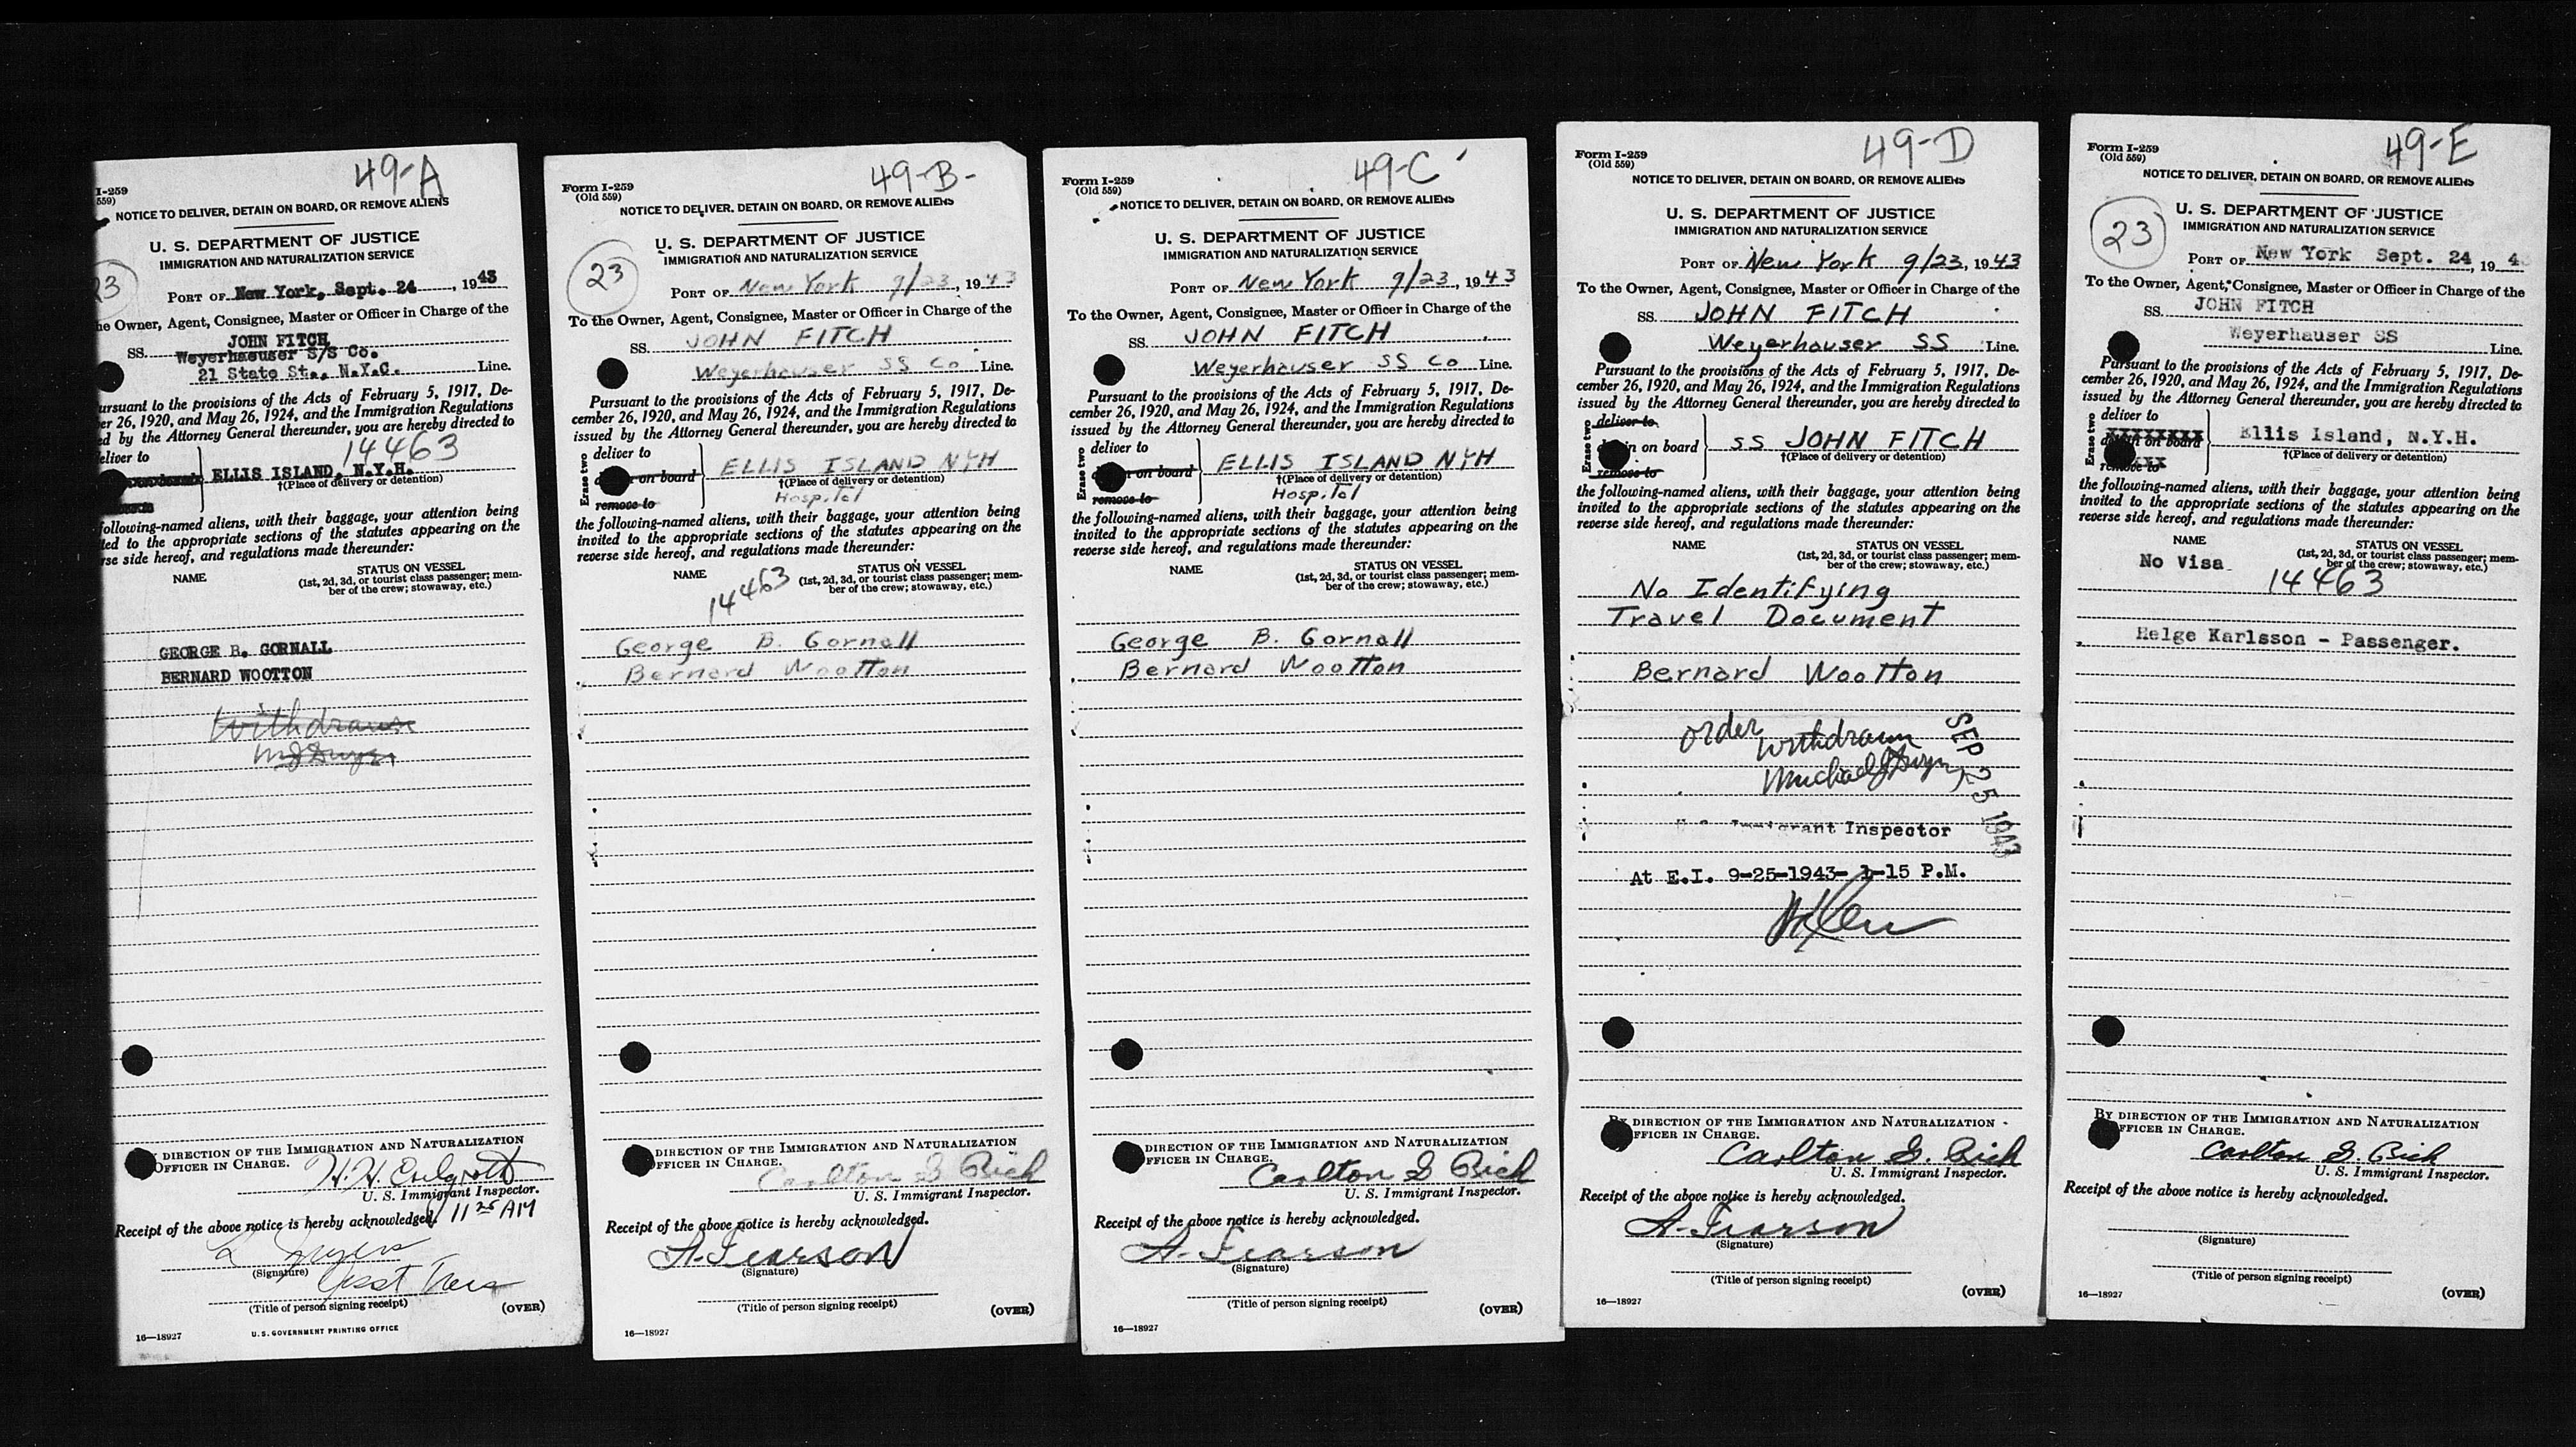 49-A
I-259
559)
NOTICE TO DELIVER, DETAIN ON BOARD, OR REMOVE ALIENS
U. S. DEPARTMENT OF JUSTICE
IMMIGRATION AND NATURALIZATION SERVICE
23
PORT OF New York, Sept. 24, 1943
he Owner, Agent, Consignee, Master or Officer in Charge of the
JOHN FITCH
SS. Weyerhaeuser S/S Co.
21 State St., N.Y.C. Line.
ursuant to the provisions of the Acts of February 5, 1917, De-
er 26, 1920, and May 26, 1924, and the Immigration Regulations
ed by the Attorney General thereunder, you are hereby directed to
14463
eliver to
ELLIS ISLAND, N.Y.H.
†(Place of delivery or detention)
following-named aliens, with their baggage, your attention being
ted to the appropriate sections of the statutes appearing on the
rse side hereof, and regulations made thereunder:
NAME STATUS ON VESSEL
(1st, 2d, 3d, or tourist class passenger; mem-
ber of the crew; stowaway, etc.)
GEORGE B. GORNALL
BERNARD WOOTTON
Withdrawn
DIRECTION OF THE IMMIGRATION AND NATURALIZATION
OFFICER IN CHARGE.
U. S. Immigrant Inspector.
11 25 AM
Receipt of the above notice is hereby acknowledged.
(Signature)
(Title of person signing receipt)
(OVER)
16—18927 U.S. GOVERNMENT PRINTING OFFICE
49-B-
Form I-259
(Old 559)
NOTICE TO DELIVER, DETAIN ON BOARD, OR REMOVE ALIENS
U. S. DEPARTMENT OF JUSTICE
IMMIGRATION AND NATURALIZATION SERVICE
23
PORT OF New York 9/23, 1943
To the Owner, Agent, Consignee, Master or Officer in Charge of the
SS. JOHN FITCH
Weyerhauser SS Co Line.
Pursuant to the provisions of the Acts of February 5, 1917, De-
cember 26, 1920, and May 26, 1924, and the Immigration Regulations
issued by the Attorney General thereunder, you are hereby directed to
Erase two
deliver to
on board
remove to
ELLIS ISLAND NYH
†(Place of delivery or detention)
Hospital
the following-named aliens, with their baggage, your attention being
invited to the appropriate sections of the statutes appearing on the
reverse side hereof, and regulations made thereunder:
NAME STATUS ON VESSEL
(1st, 2d, 3d, or tourist class passenger; mem-
ber of the crew; stowaway, etc.)
14463
George B. Gornall
Bernard Wootton
DIRECTION OF THE IMMIGRATION AND NATURALIZATION
FFICER IN CHARGE.
Carlton G Rich
U. S. Immigrant Inspector.
Receipt of the above notice is hereby acknowledged.
A. Fearson
(Signature)
(Title of person signing receipt)
(OVER)
16—18927
49-C
Form I-259
(Old 559)
NOTICE TO DELIVER, DETAIN ON BOARD, OR REMOVE ALIENS
U. S. DEPARTMENT OF JUSTICE
IMMIGRATION AND NATURALIZATION SERVICE
PORT OF New York 9/23, 1943
To the Owner, Agent, Consignee, Master or Officer in Charge of the
SS. JOHN FITCH
Weyerhauser SS Co Line.
Pursuant to the provisions of the Acts of February 5, 1917, De-
cember 26, 1920, and May 26, 1924, and the Immigration Regulations
issued by the Attorney General thereunder, you are hereby directed to
Erase two
deliver to
on board
remove to
ELLIS ISLAND NYH
†(Place of delivery or detention)
Hospital
the following-named aliens, with their baggage, your attention being
invited to the appropriate sections of the statutes appearing on the
reverse side hereof, and regulations made thereunder:
NAME STATUS ON VESSEL
(1st, 2d, 3d, or tourist class passenger; mem-
ber of the crew; stowaway, etc.)
George B. Gornall
Bernard Wootton
DIRECTION OF THE IMMIGRATION AND NATURALIZATION
FFICER IN CHARGE.
Carlton G Rich
U. S. Immigrant Inspector.
Receipt of the above notice is hereby acknowledged.
A. Fearson
(Signature)
(Title of person signing receipt)
(OVER)
16—18927
49-D
Form I-259
(Old 559)
NOTICE TO DELIVER, DETAIN ON BOARD, OR REMOVE ALIENS
U. S. DEPARTMENT OF JUSTICE
IMMIGRATION AND NATURALIZATION SERVICE
PORT OF New York 9/23, 1943
To the Owner, Agent, Consignee, Master or Officer in Charge of the
SS. JOHN FITCH
Weyerhauser SS Line.
Pursuant to the provisions of the Acts of February 5, 1917, De-
cember 26, 1920, and May 26, 1924, and the Immigration Regulations
issued by the Attorney General thereunder, you are hereby directed to
Erase two
deliver to
in on board
remove to
SS JOHN FITCH
†(Place of delivery or detention)
the following-named aliens, with their baggage, your attention being
invited to the appropriate sections of the statutes appearing on the
reverse side hereof, and regulations made thereunder:
NAME STATUS ON VESSEL
(1st, 2d, 3d, or tourist class passenger; mem-
ber of the crew; stowaway, etc.)
No Identifying
Travel Document
Bernard Wootton
order withdrawn
SEP 25 1943
Immigrant Inspector
At E.I. 9-25-1943- 1-15 P.M.
BY DIRECTION OF THE IMMIGRATION AND NATURALIZATION
FFICER IN CHARGE.
Carlton G. Rich
U. S. Immigrant Inspector.
Receipt of the above notice is hereby acknowledged.
A. Fearson
(Signature)
(Title of person signing receipt)
(OVER)
16—18927
49-E
Form I-259
(Old 559)
NOTICE TO DELIVER, DETAIN ON BOARD, OR REMOVE ALIENS
U. S. DEPARTMENT OF JUSTICE
IMMIGRATION AND NATURALIZATION SERVICE
23
PORT OF New York Sept. 24, 194
To the Owner, Agent, Consignee, Master or Officer in Charge of the
SS. JOHN FITCH
Weyerhauser SS Line.
Pursuant to the provisions of the Acts of February 5, 1917, De-
cember 26, 1920, and May 26, 1924, and the Immigration Regulations
issued by the Attorney General thereunder, you are hereby directed to
Erase two
deliver to
detain on board
remove to
Ellis Island, N.Y.H.
†(Place of delivery or detention)
the following-named aliens, with their baggage, your attention being
invited to the appropriate sections of the statutes appearing on the
reverse side hereof, and regulations made thereunder:
NAME STATUS ON VESSEL
No Visa (1st, 2d, 3d, or tourist class passenger; mem-
ber of the crew; stowaway, etc.)
14463
Helge Karlsson - Passenger.
BY DIRECTION OF THE IMMIGRATION AND NATURALIZATION
FFICER IN CHARGE.
Carlton G. Rich
U. S. Immigrant Inspector.
Receipt of the above notice is hereby acknowledged.
(Signature)
(Title of person signing receipt)
(OVER)
16—18927